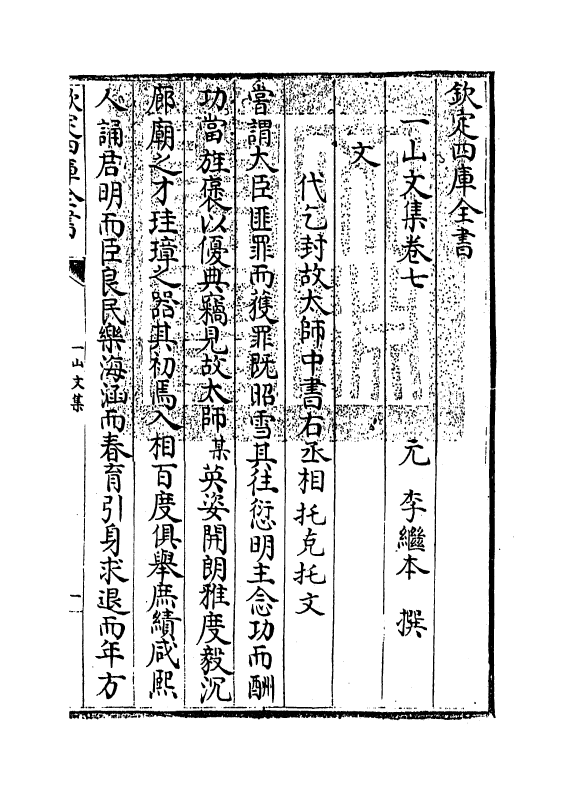 欽定四庫全書
一山文集卷七
元　李繼本　撰
文
代乞封故太師中書右丞相托克托文
嘗謂大臣匪罪而獲罪既昭雪其往愆明主念功而酬
功當旌褒以優典竊見故太師某英姿開朗雅度毅沉
廊廟之才珪璋之器其初焉入相百度俱舉庶績咸熙
人誦君明而臣良民樂海涵而春育引身求退而年方
欽定四庫全書
一山文集
一